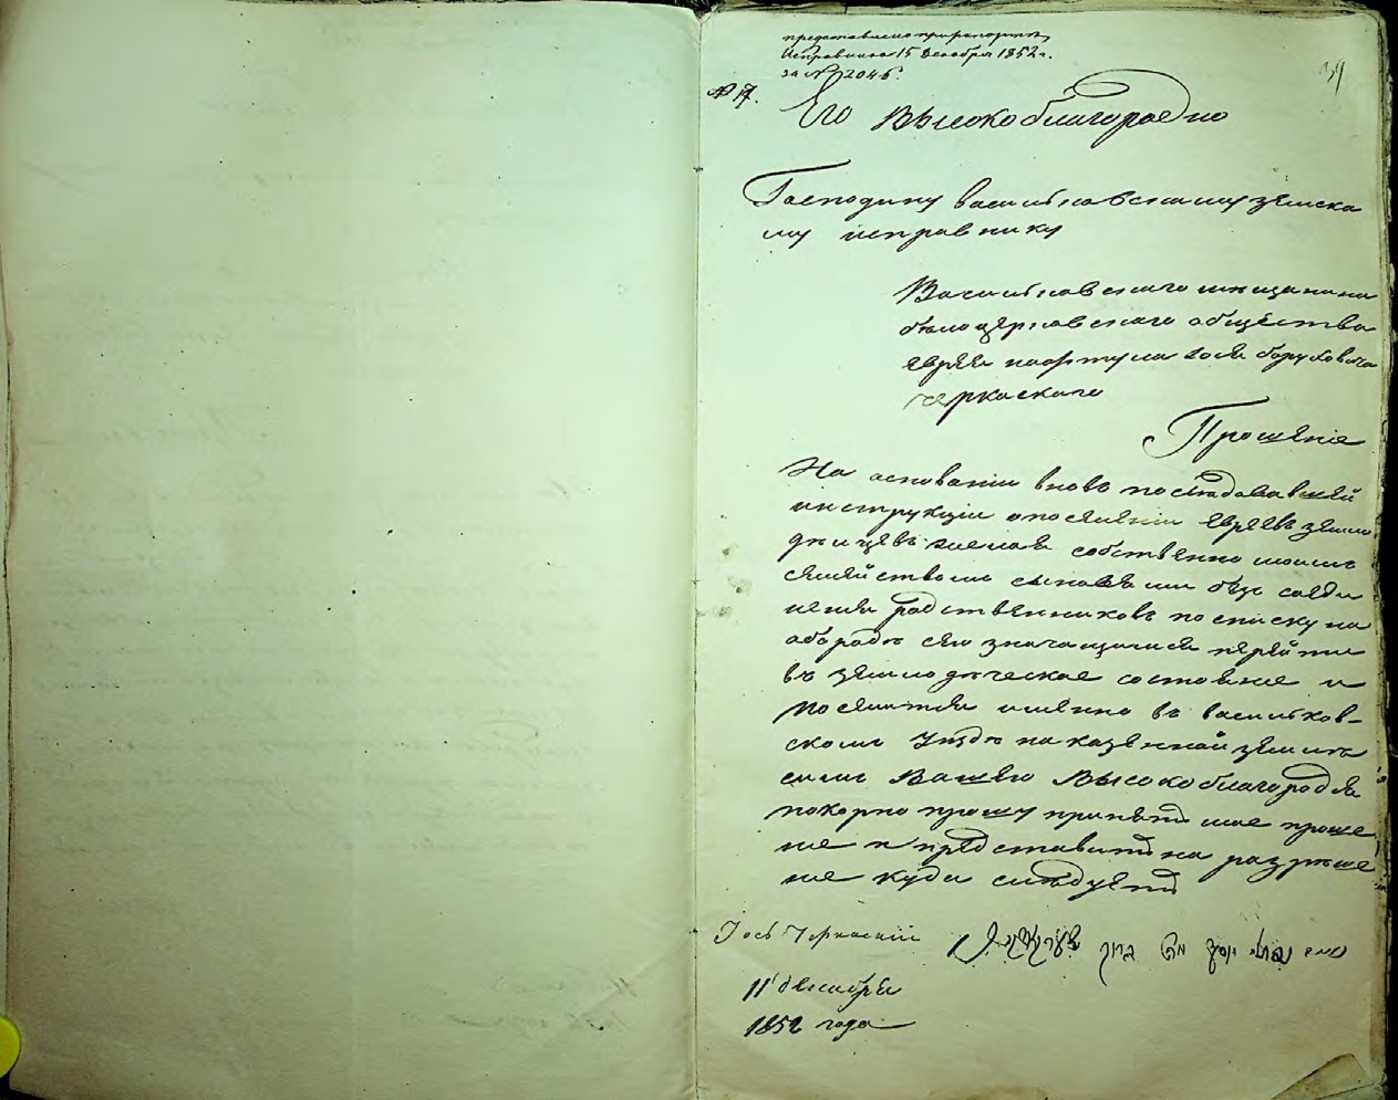 представлено при рапорте
Исправника 15 декабря 1852 г.
за № 2046.
39
№ 17.
Его Высокоблагородію
Господину васильковскому земска
му исправнику
Васильковскаго мещанина
белоцерковскаго общества
еврея нафтула Іося боруховича
черкаскаго
Прошеніе
На основаніи вновь последовавшей
инструкціи о поселеніи евреевъ земле
дельцевъ желая собственно моимъ
семействомъ сыновями безъ соеди
ненія родственниковъ по списку на
оборотъ сего значащимися перейти
въ земледелческое состояніе и
поселится именно въ васильков-
скомъ Уезде на казенной земле
симъ Вашего Высокоблагородія
покорно прошу принять мое проше
ніе и представить на разреше
ніе куда следуетъ
Іось Черкаскій
נפתלי יוסף ברוך טשערקאסקי
11 декабря
1852 года